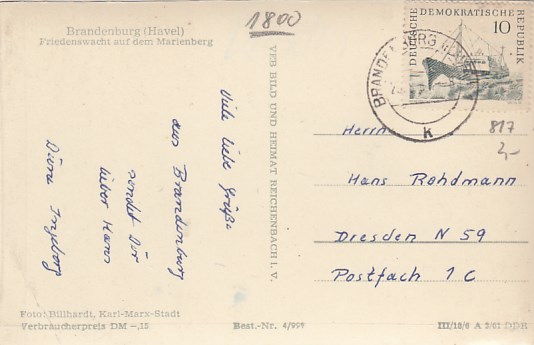 Brandenburg (Havel)
Friedenswacht auf dem Marienberg
1800
DEUTSCHE DEMOKRATISCHE REPUBLIK
10
BRANDENBURG (HAVEL)
k
817
2,-
Viele liebe Grüße
aus Brandenburg
sendet Dir
lieber Hans
Deine Ingeborg
VEB BILD UND HEIMAT REICHENBACH I. V.
Herrn
Hans Rohdmann
Dresden N 59
Postfach 1 C
Foto: Billhardt, Karl-Marx-Stadt
Verbraucherpreis DM -,15
Best.-Nr. 4/999
III/18/6 A 3/61 DDR